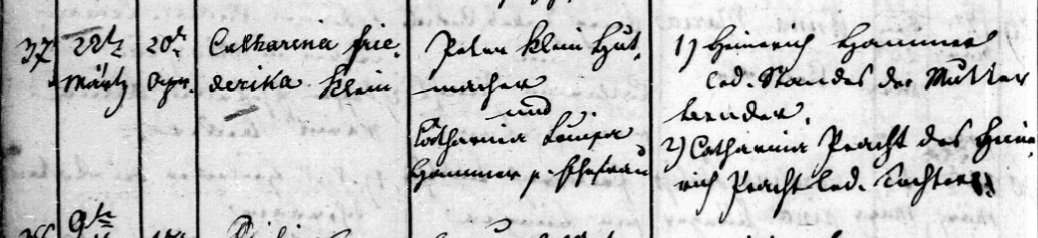 37
22te
Märtz
20te
Apr.
Catharina Frie-
derika Klein
Peter Klein Hut-
macher
und
Catharina Louisa
Hammer p. Ehefrau
1) Heinrich Hammer
led. Standes der Mutter
Bruder.
2) Catharina Pracht des Hein-
rich Pracht led. Tochter.
9te